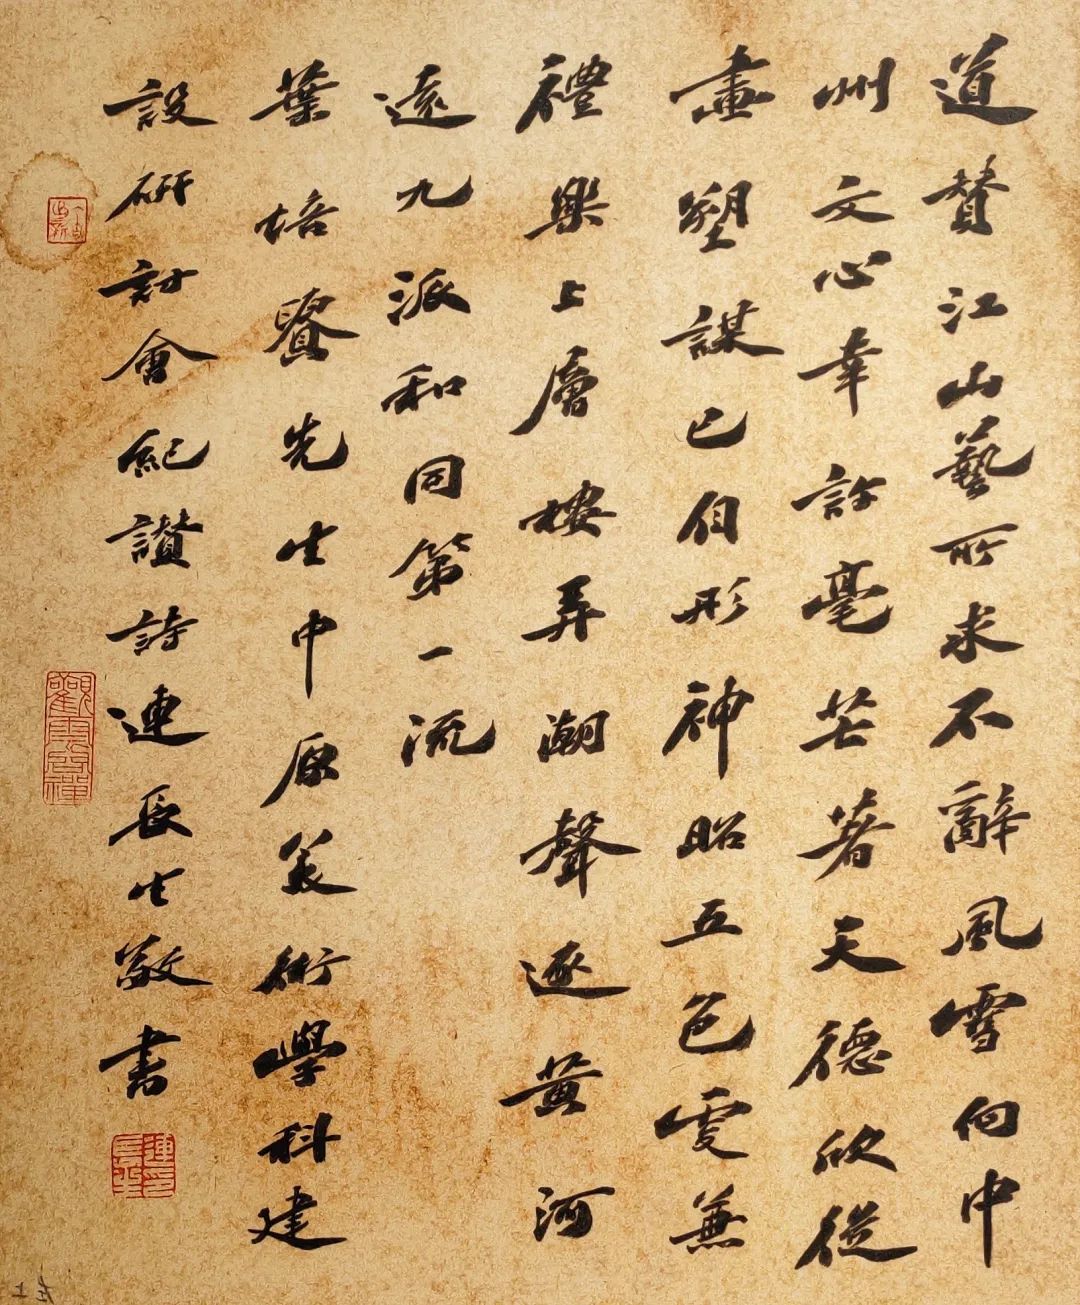 道贊江山藝所求不辭風雪向中
州文心幸許毫芒著天德欣從
畫塑謀已自形神昭五色更兼
禮樂上層樓弄潮聲逐黃河
遠九派和同第一流
葉培貴先生中原美術學科建
設研討會紀讚詩連長生敬書
觀雲聽禪
連長生印